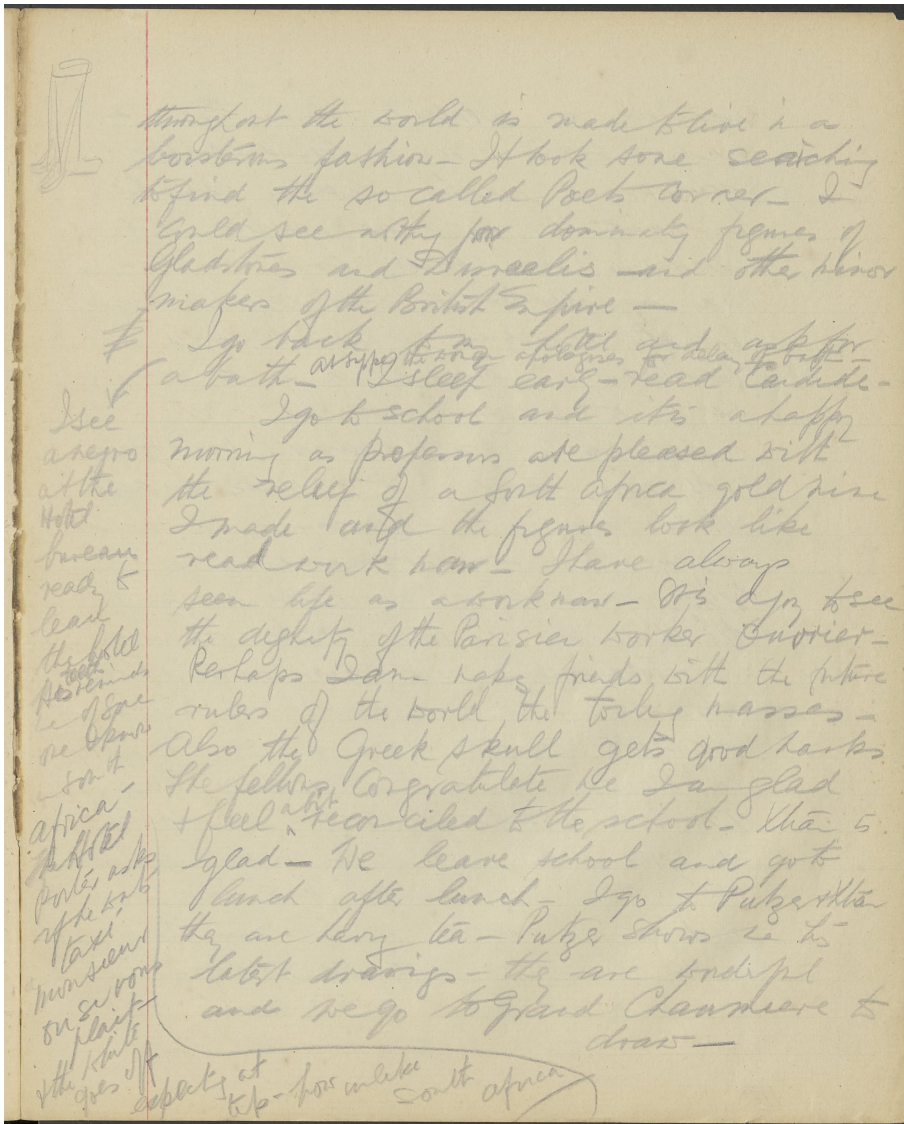 throughout the world is made to live in a
boisterous fashion - It took some searching
to find the so called Poets Corner - I
could see nothing for dominating figures of
Gladstones and Disraelis - and other minor
makers of the British Empire -
I go back to my hotel and ask for
at supper apologises for delay of bath -
a bath - I sleep early - read Candide -
I go to school and it is a happy
morning as professors are pleased with
the relief of a South Africa gold mine
I made and the figures look like
read work now - I have always
seen life as a work man - It is a joy to see
the dignity of the Parisien worker Ouvrier -
Perhaps I am make friends with the future
rulers of the world the toiling masses -
Also the Greek skull gets good marks
The fellows congratulate me I am glad
& feel a bit reconciled to the school - is
glad - We leave school and go to
lunch after lunch - I go to Putzer
they are having tea - Putzer shows me his
latest drawings - they are wonderful
and we go to Grand Chaumiere to
draw -
I see
a negro
at the
Hotel
bureau
ready to
leave
the hotel
reminds
me of some
one I know
in South
Africa -
The Hotel
porter asks
if he wants
taxi
monsieur
ou si vous
plait -
& the
goes off
expecting a
tip - how unlike
South Africa